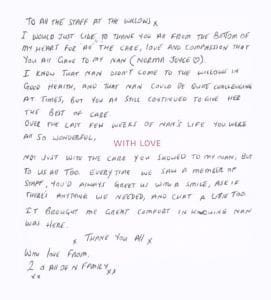 TO All THE STAFF AT THE WILLOWS x
I WOULD JUST LIKE TO THANK YOU All FROM THE BOTTOM OF
MY HEART FOR All THE CARE, LOVE AND COMPASSION THAT
YOU All GAVE TO MY NAN (NORMA JOYCE ♡)
I KNOW THAT NAN DIDN'T COME TO THE WILLOWS IN
GOOD HEALTH, AND THAT NAN COULD BE QUITE CHALLENGING
AT TIMES, BUT YOU All STILL CONTINUED TO GIVE HER
THE BEST OF CARE.
OVER THE LAST FEW WEEKS OF NAN'S LIFE YOU WERE
All SO WONDERFUL,
WITH LOVE
NOT JUST WITH THE CARE YOU SHOWED TO MY NAN, BUT
TO US All TOO. EVERYTIME WE SAW A MEMBER OF
STAFF, YOU'D ALWAYS GREET US WITH A SMILE, ASK IF
THERE'S ANYTHING WE NEEDED, AND CHAT A LITTLE TOO.
IT BROUGHT ME GREAT COMFORT IN KNOWING NAN
WAS HERE.
x THANK YOU All x
WITH LOVE FROM.
FAMILY xx
xx